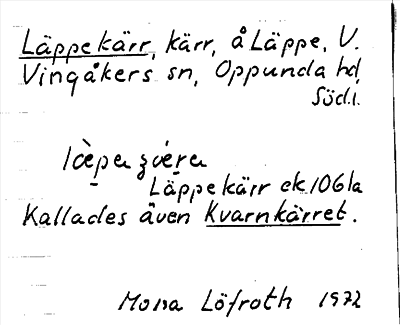 Läppekärr, kärr, å Läppe, V.
Vingåkers sn, Oppunda hd,
Södl.
Läppekärr ek. 1061a
Kallades även Kvarnkärret.
Mona Löfroth 1972